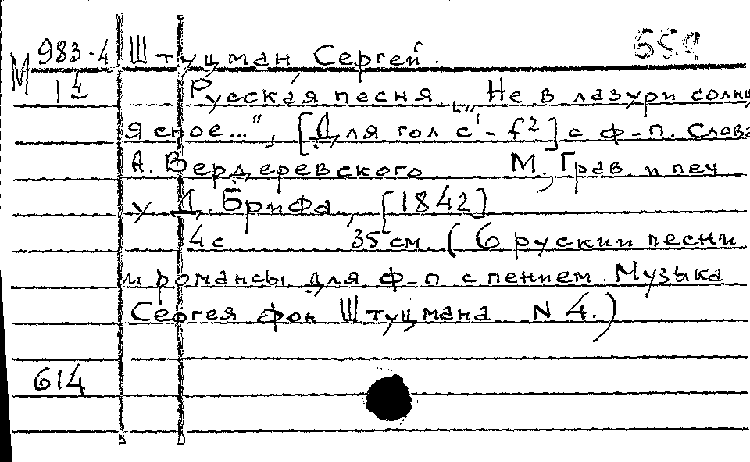 М 983-4 Штуцман, Сергей.
14 Русская песня „Не в лазури солнц
ясное...", [Для гол c¹-f²] с ф-п. Слова
А. Вердеревского М, Грав. и печ
у Д. Брифа, [1842]
4с 35 см. (6 руский песни
и романсы для ф-п с пением. Музыка
Сергея фон Штуцмана N 4.)
614